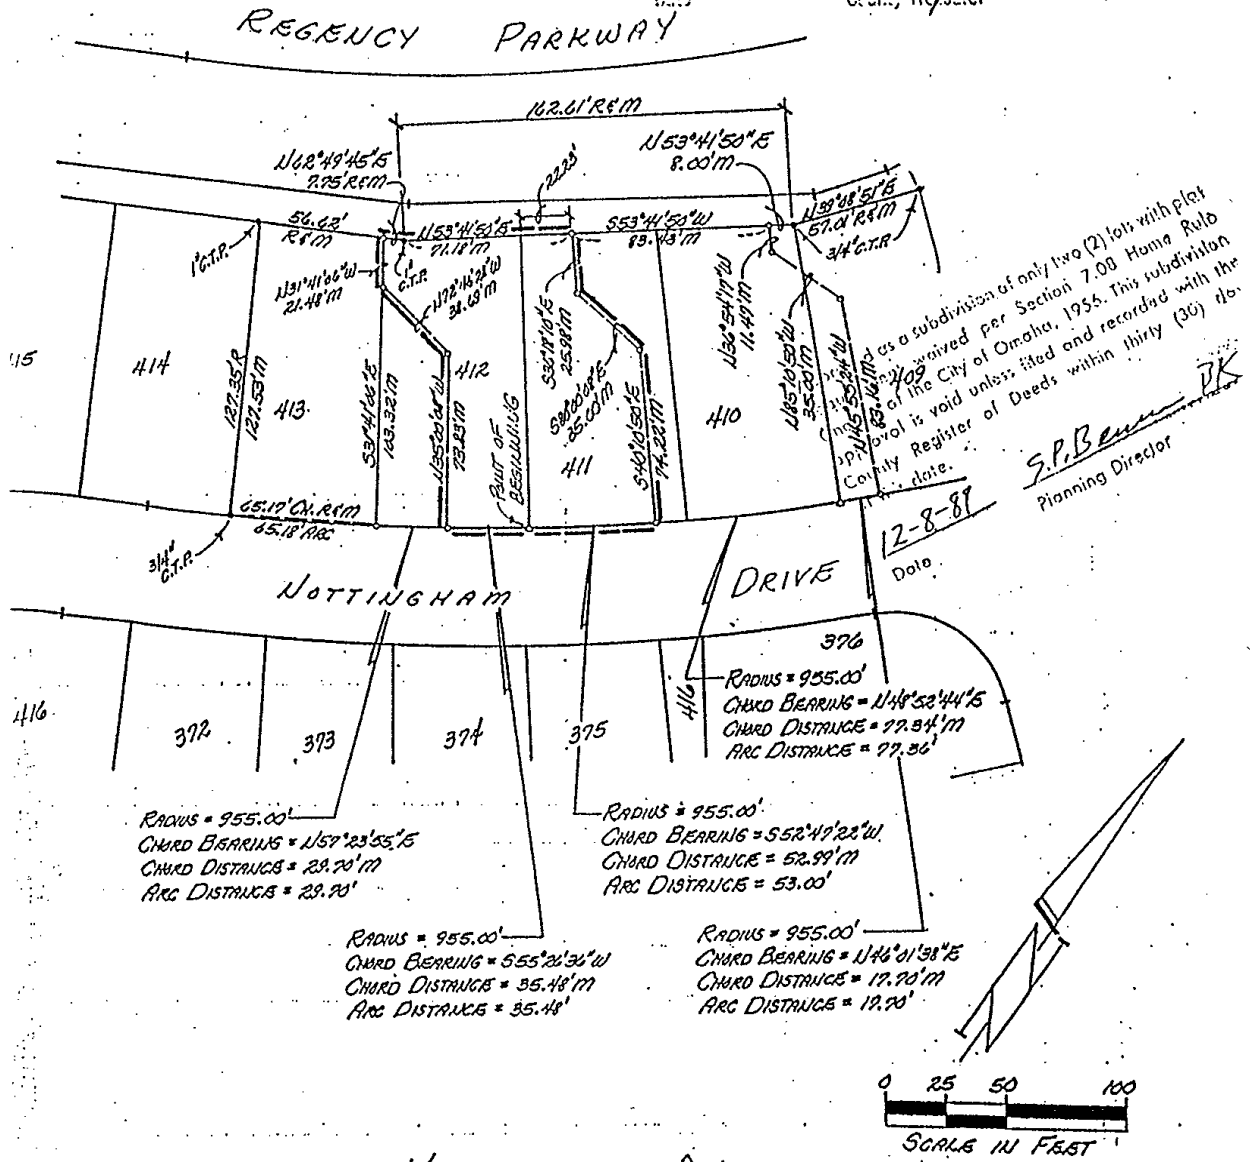 REGENCY PARKWAY
162.61' R&M
N62°49'45"E
7.75' R&M
22.23'
N53°41'50"E
8.00' M
N39°08'51"E
57.01' R&M
3/4" O.T.P.
56.62'
R&M
1" O.T.P.
N53°41'50"E
71.18' M
S53°41'50"W
83.43' M
N31°41'06"W
21.48' M
1"
O.T.P.
N72°46'28"W
38.69' M
S36°18'10"E
25.98' M
S80°00'08"E
35.00' M
N36°54'17"W
11.49' M
N85°10'50"W
35.00' M
N45°55'24"W
83.16' M
415
414
127.35' R
127.53' M
413
S31°41'06"E
103.32' M
N35°00'08"W
73.23' M
412
POINT OF
BEGINNING
411
S40°10'50"E
74.22' M
410
409
as a subdivision of only two (2) lots with plat
waived per Section 7.08 Home Rule
of the City of Omaha, 1956. This subdivision
approval is void unless filed and recorded with the
County Register of Deeds within thirty (30)
date.
S.P. Benson BK
Planning Director
12-8-89
Date
65.17' CH. R&M
65.18' ARC
3/4"
O.T.P.
NOTTINGHAM DRIVE
416
372
373
374
375
416
376
RADIUS = 955.00'
CHORD BEARING = N48°52'44"E
CHORD DISTANCE = 77.34' M
ARC DISTANCE = 77.36'
RADIUS = 955.00'
CHORD BEARING = N57°23'55"E
CHORD DISTANCE = 29.70' M
ARC DISTANCE = 29.70'
RADIUS = 955.00'
CHORD BEARING = S52°47'22"W
CHORD DISTANCE = 52.99' M
ARC DISTANCE = 53.00'
RADIUS = 955.00'
CHORD BEARING = S55°26'36"W
CHORD DISTANCE = 35.48' M
ARC DISTANCE = 35.48'
RADIUS = 955.00'
CHORD BEARING = N46°01'38"E
CHORD DISTANCE = 17.70' M
ARC DISTANCE = 17.70'
0 25 50 100
SCALE IN FEET